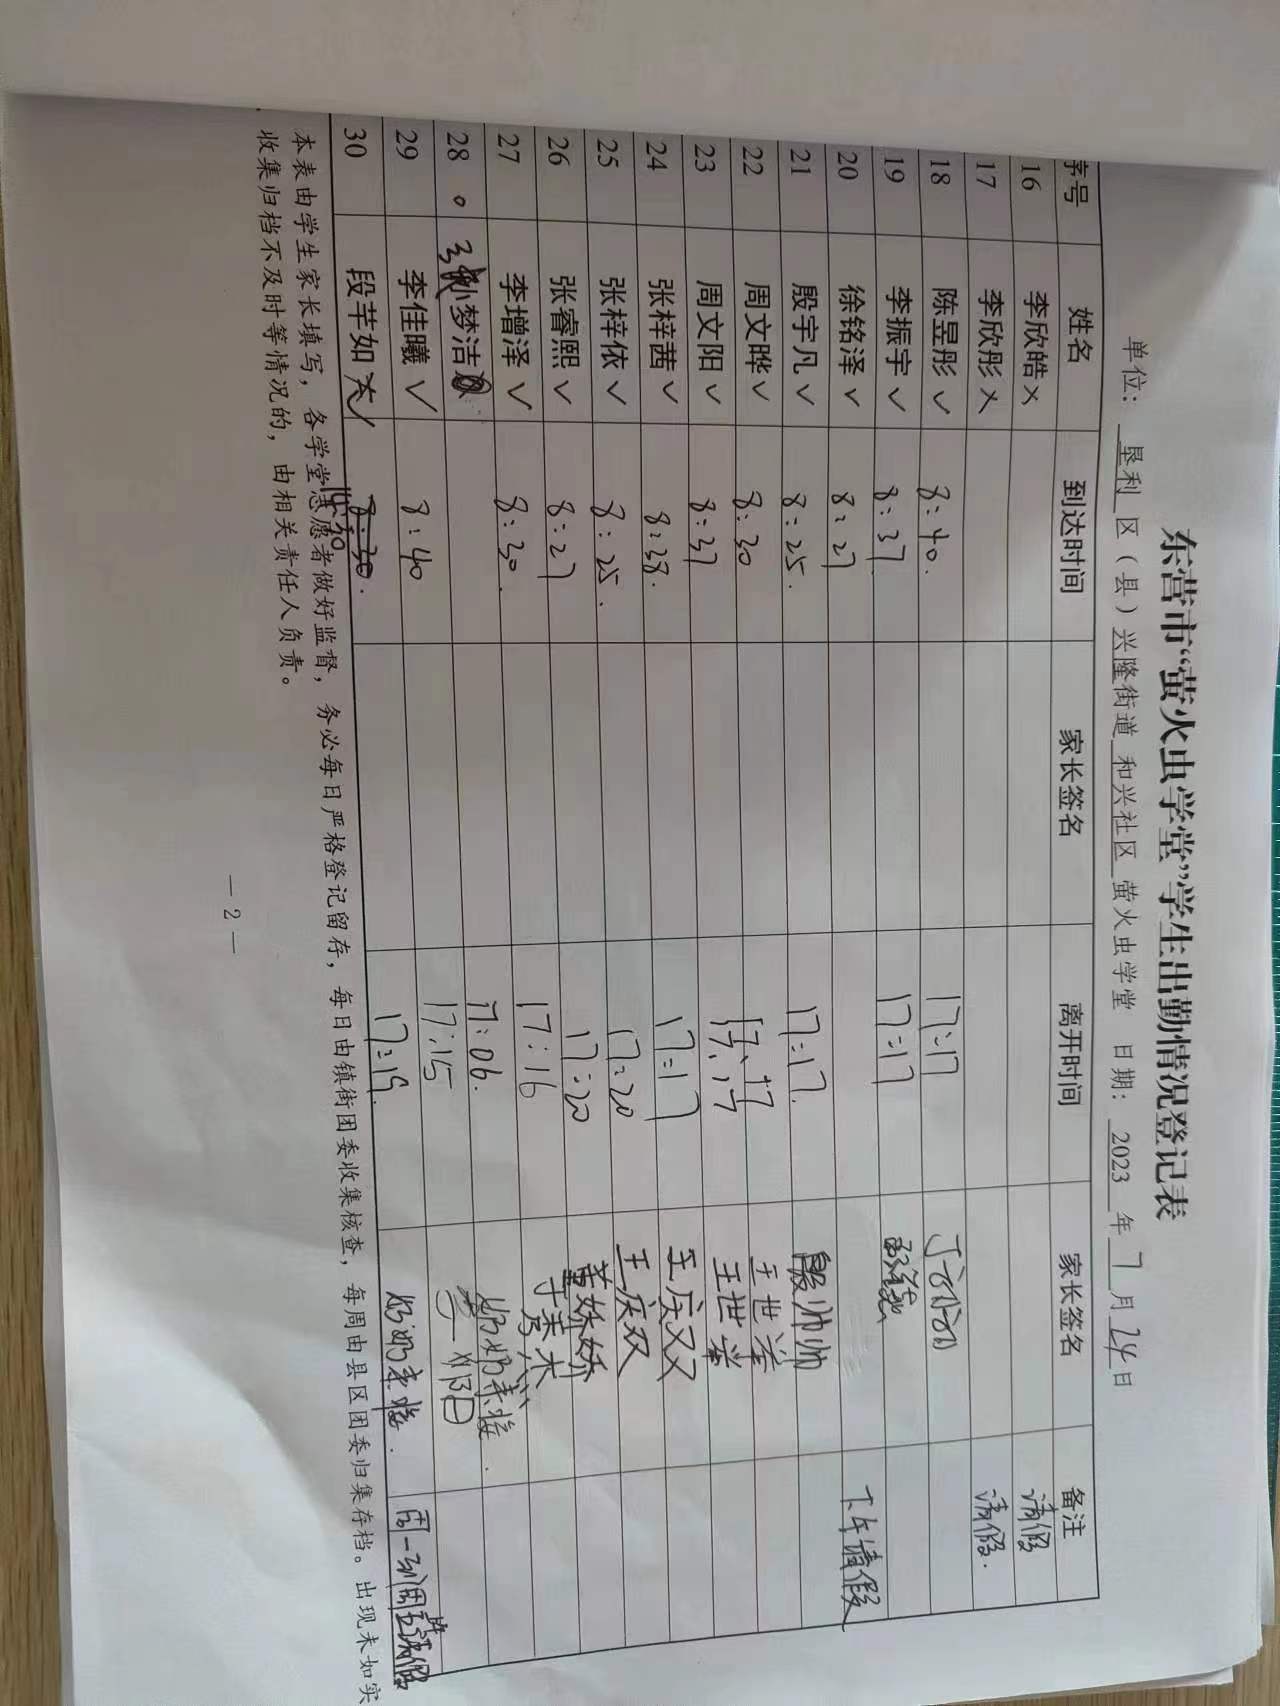 东营市“萤火虫学堂”学生出勤情况登记表
单位：垦利区（县）兴隆街道 和兴社区 萤火虫学堂 日期：2023年7月24日
序号 姓名 到达时间 家长签名 离开时间 家长签名 备注
16 李欣皓× 请假
17 李欣彤× 请假.
18 陈昱彤✓ 8:40. 17:17
19 李振宇✓ 8:37 17:17
20 徐铭泽✓ 8:27 下午请假
21 殷宇凡✓ 8:25. 17:17. 殷帅帅
22 周文晔✓ 8:30 17:17 王世峯
23 周文阳✓ 8:37 17:17 王世峯
24 张梓茜✓ 8:38. 17:17 王庆双
25 张梓依✓ 8:25. 17:20 王庆双
26 张睿熙✓ 8:27 17:20 苗娇娇
27 李增泽✓ 8:30. 17:16
28 孙梦洁 17:06. 奶奶来接.
29 李佳曦✓ 8:40 17:15
30 段芊如 8:30. 17:19. 奶奶来接. 周一到周五请假
本表由学生家长填写，各学堂志愿者做好监督，务必每日严格登记留存，每日由镇街团委收集核查，每周由县区团委归集存档。出现未如实
收集归档不及时等情况的，由相关责任人负责。
—2—